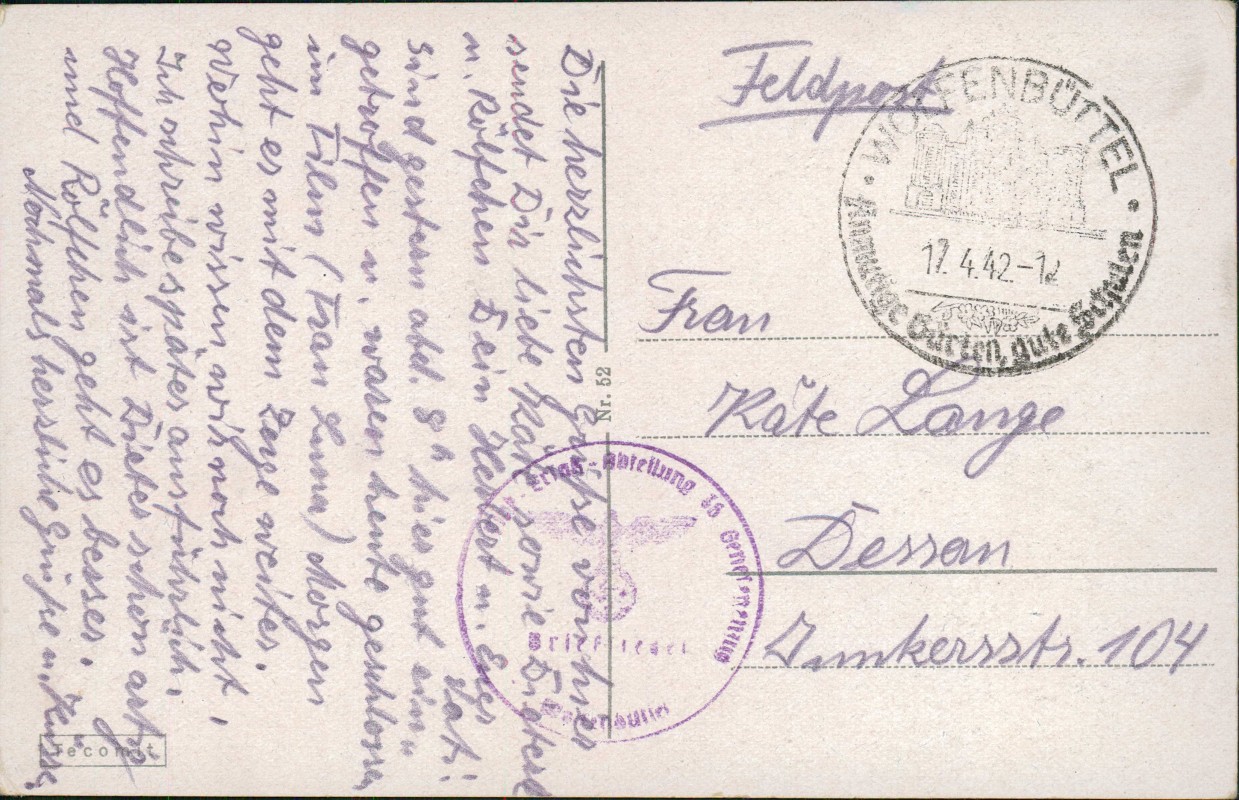 Die herzlichsten Grüße von hier
sendet Dir liebe Kät sowie Dieterl
u. Rölfchen Dein Herbert u. Euer
Vati!
Sind gestern abd. 8ʰ hier gut ein=
getroffen u. waren heute geschlossen
im Film (Frau Luna) Morgen
geht es mit dem Zuge weiter.
Wohin wissen wir noch nicht,
Ich schreibe später ausführlich,
Hoffendlich ist Dieter schon artig
und Rölfchen geht es besser.
Nochmals herzliche Grüße u. Küsse,
Tecomit
Nr. 52
Feldpost
WOLFENBÜTTEL
17.4.42-12
Gärten, gute Schulen
Frau
Käte Lange
Dessau
Junkersstr. 104
Ersatz-Abteilung
Briefstempel
Wolfenbüttel